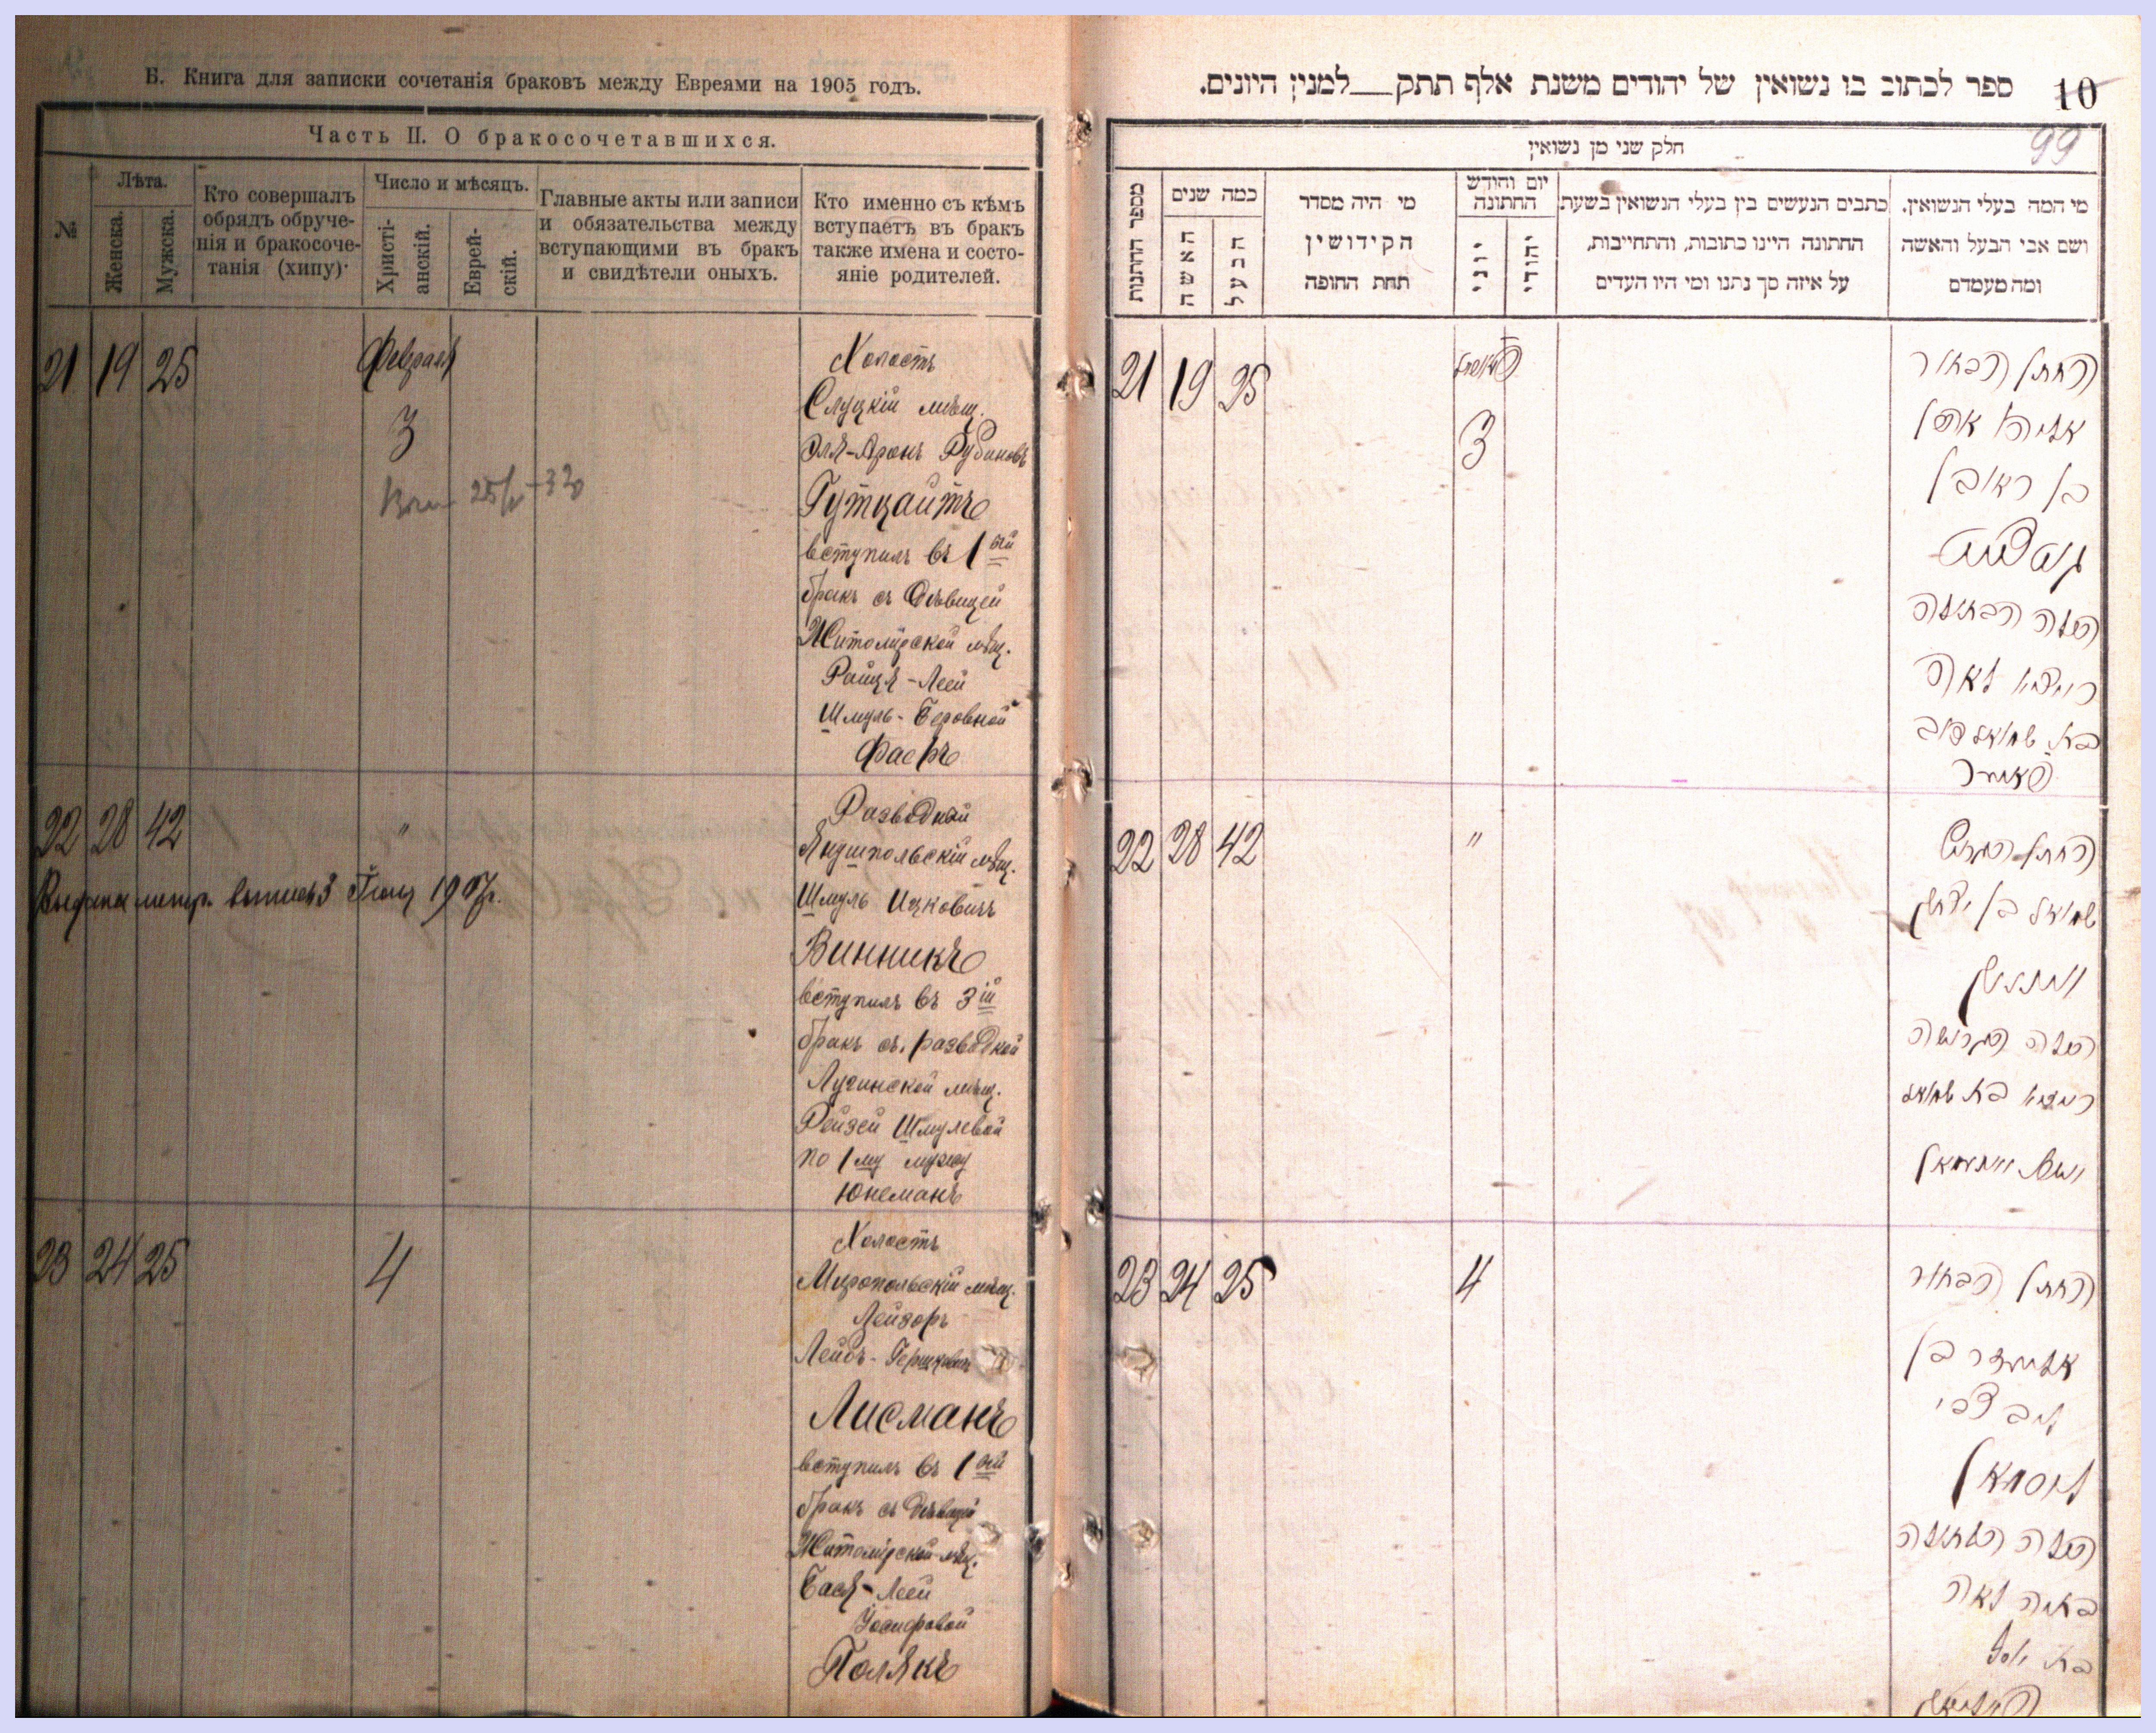 Б. Книга для записки сочетанія браковъ между Евреями на 1905 годъ.
Часть II. О бракосочетавшихся.
№
Лѣта.
Женска.
Мужска.
Кто совершалъ
обрядъ обруче-
нія и бракосоче-
танія (хипу).
Число и мѣсяцъ.
Христі-
анскій.
Еврей-
скій.
Главные акты или записи
и обязательства между
вступающими въ бракъ
и свидѣтели оныхъ.
Кто именно съ кѣмъ
вступаетъ въ бракъ
также имена и состо-
яніе родителей.
21 19 25 Февраля
3
25/V - 32
Холостъ
Слуцкій мѣщ.
Эля-Аронъ Рубиновъ
Гутцайтъ
вступилъ въ 1ый
бракъ съ дѣвицей
Житомірской мѣщ.
Райця-Леей
Шмуль-Беровной
Фаеръ
22 28 42 "
Выдана метр. выпись 3 1907г.
Разведеный
Янушпольскій мѣщ.
Шмуль Ицковичъ
Винникъ
вступилъ въ 3ій
бракъ съ разведеной
Лугинской мѣщ.
Рейзей Шмулевой
по 1му мужу
Юнеманъ
23 24 25 4
Холостъ
Миропольскій мѣщ.
Лейзоръ
Лейбъ-Гершковичъ
Лисманъ
вступилъ въ 1ый
бракъ съ дѣвицей
Житомірской мѣщ.
Бася-Леей
Іосифовой
Полякъ
ספר לכתוב בו נשואין של יהודים משנת אלף תתק למנין היונים.
10
99
חלק שני מן נשואין
מספר החתנות
כמה שנים
האשה
הבעל
מי היה מסדר
הקידושין
תחת החופה
יום וחודש
החתונה
יוני
יהודי
כתבים הנעשים בין בעלי הנשואין בשעת
החתונה היינו כתובות, והתחייבות,
על איזה סך נתנו ומי היו העדים
מי המה בעלי הנשואין.
ושם אבי הבעל והאשה
ומה מעמדם
21 19 25
3
החתן הבחור
אליהו אהרן
בן ראובן
גוטצייט
הכלה הבתולה
רייצא לאה
בת שמואל דוב
פאייער
22 28 42 "
החתן הגרוש
שמואל בן יצחק
וויניק
הכלה הגרושה
רייזא בת שמואל
23 24 25 4
החתן הבחור
אליעזר בן
ליב צבי
ליסמאן
הכלה הבתולה
באסיה לאה
בת יוסף
פאליאק